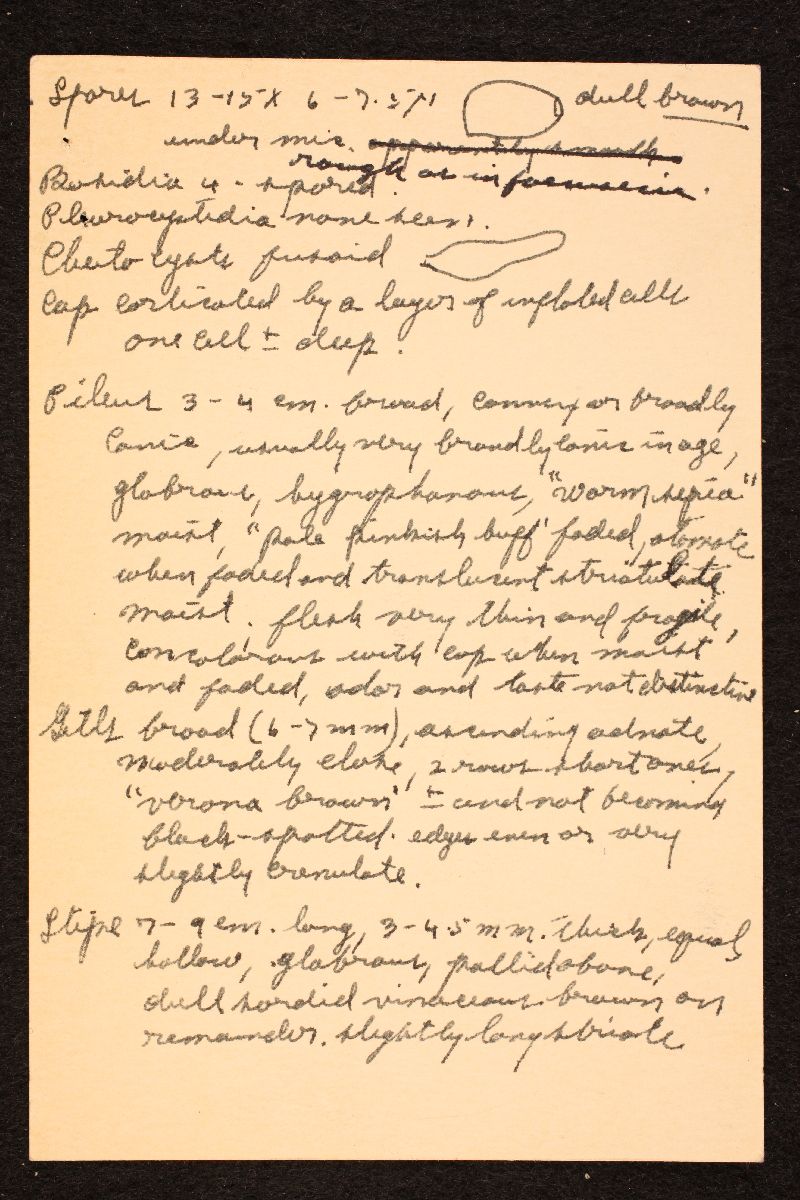 Spores 13-15 X 6-7.5 µ dull brown
under mic. apparently smooth
rough as in foenisecii.
Basidia 4-spored.
Pleurocystidia none seen.
Cheilocysts fusoid
Cap corticated by a layer of inflated cells
one cell ± deep.
Pileus 3-4 cm. broad, convex or broadly
conic, usually very broadly conic in age,
glabrous, hygrophanous, "warm sepia"
moist, "pale pinkish buff" faded, atomate
when faded and translucent striatulate
moist, flesh very thin and fragile,
concolorous with cap when moist
and faded, odor and taste not distinctive
Gills broad (6-7 mm), ascending adnate,
moderately close, 2 rows short ones,
"verona brown" ± and not becoming
black-spotted. edges even or very
slightly crenulate.
Stipe 7-9 cm. long, 3-4.5 mm. thick, equal,
hollow, glabrous, pallid above,
dull sordid vinaceous brown on
remainder. slightly long striate